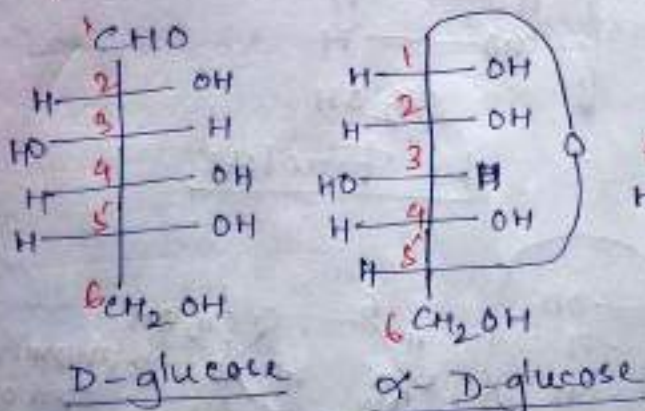 1 CHO
H 2 OH
HO 3 H
H 4 OH
H 5 OH
6 CH2 OH
D-glucose
H 1 OH
H 2 OH
HO 3 H
H 4 OH
H 5
O
6 CH2 OH
α-D-glucose
H